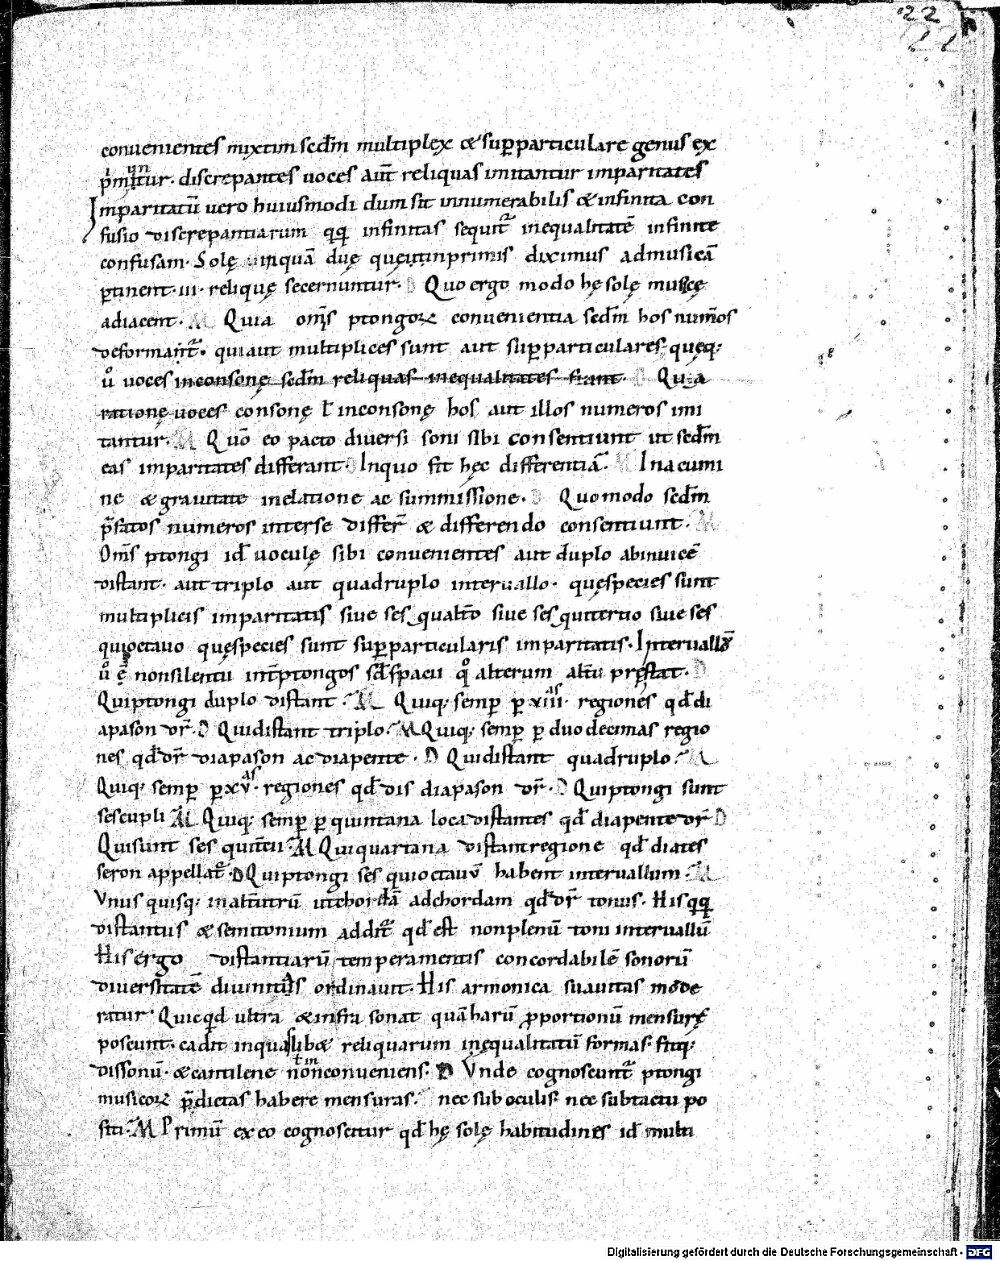 22
22
conuenientes mixtim scdm̄ multiplex & sup̄particulare genus ex
discrepantes uoces aut̄ reliquas imitantur imparitates
Imparitatū uero huiusmodi dum sit innumerabilis & infinita con
fusio discrepantiarum infinitas sequit᷑ inequalitatē infinite
confusam. Solę inquā duę diximus admusicā
p̄tinent .iii. reliquę secernuntur. D Quo ergo modo hę solę musicę
adiacent. M Quia om̄s ptongoꝝ conuenientia scdm̄ hos num̄os
quiaut multiplices sunt aut sup̄particulares, quęq;
ů uoces inconsonę scdm̄ reliquas inequalitates fiant. D Quia
ratione uoces consonę ł inconsonę hos aut illos numeros imi
tantur. M Quō eo pacto diuersi soni sibi consentiunt ut scdm̄
eas imparitates differant. D Inquo fit hęc differentia. M Inacumi
ne & grauitate inelatione ac summissione. D Quomodo scdm̄
p̄fatos numeros interse differ̄ & differendo consentiunt. M
Om̄s ptongi id᷑ uoculę sibi conuenientes aut duplo abinuicē
distant. aut triplo aut quadruplo interuallo. quęspecies sunt
multiplicis imparitatis siue ses quat̄o siue ses quitertio siue ses
quioctauo quęspecies sunt sup̄particularis imparitatis. Interuallū
ů ē nonsilentii int̄ptongos sed᷑spacii qͦ alterum alt̄ū pręstat. D
Quiptongi duplo distant. M Quiq; semp̄ p̄ xiiii.as regiones qd᷑ di
apason dr̄. D Quidistant triplo. M Quiq; semp̄ p̄ duodecimas regio
nes qd᷑ dr̄ diapason ac diapente. D Quidistant quadruplo. M
Quiq; semp̄ p̄ xv.as regiones qd᷑ dis diapason dr̄. D Quiptongi sunt
sescupli M Quiq; semp̄ p̄ quintana loca distantes qd᷑ diapente dr̄ D
Quisunt ses quit̄tii. M Quiquartana distantregione qd᷑ diates
seron appellat᷑. D Quiptongi ses quioctauū habent interuallum. M
Vnus quisq; inalt̄utrū utchordā adchordam qd᷑ dr̄ tonus. His qq̄
distantiis & semitonium addit᷑ qd᷑ est nonplenū toni interuallū
His ergo distantiarū temperamentis concordabilē sonorū
diuersitatē diuinitas ordinauit. His armonica suauitas mode
ratur. Quicqd ultra & infra sonat quā harū p̄portionū mensurę
poscunt. cadit inquaslib& reliquarum inęqualitatū formas. fitq;
dissonū. & cantilene nonconueniens. D Vnde cognoscunt᷑ ptongi
musicoꝝ p̄dictas habere mensuras. nec sub oculis nec subtactu po
siti. M Primū ex eo cognoscitur qd᷑ hę solę habitudines id᷑ multi
Digitalisierung gefördert durch die Deutsche Forschungsgemeinschaft - DFG